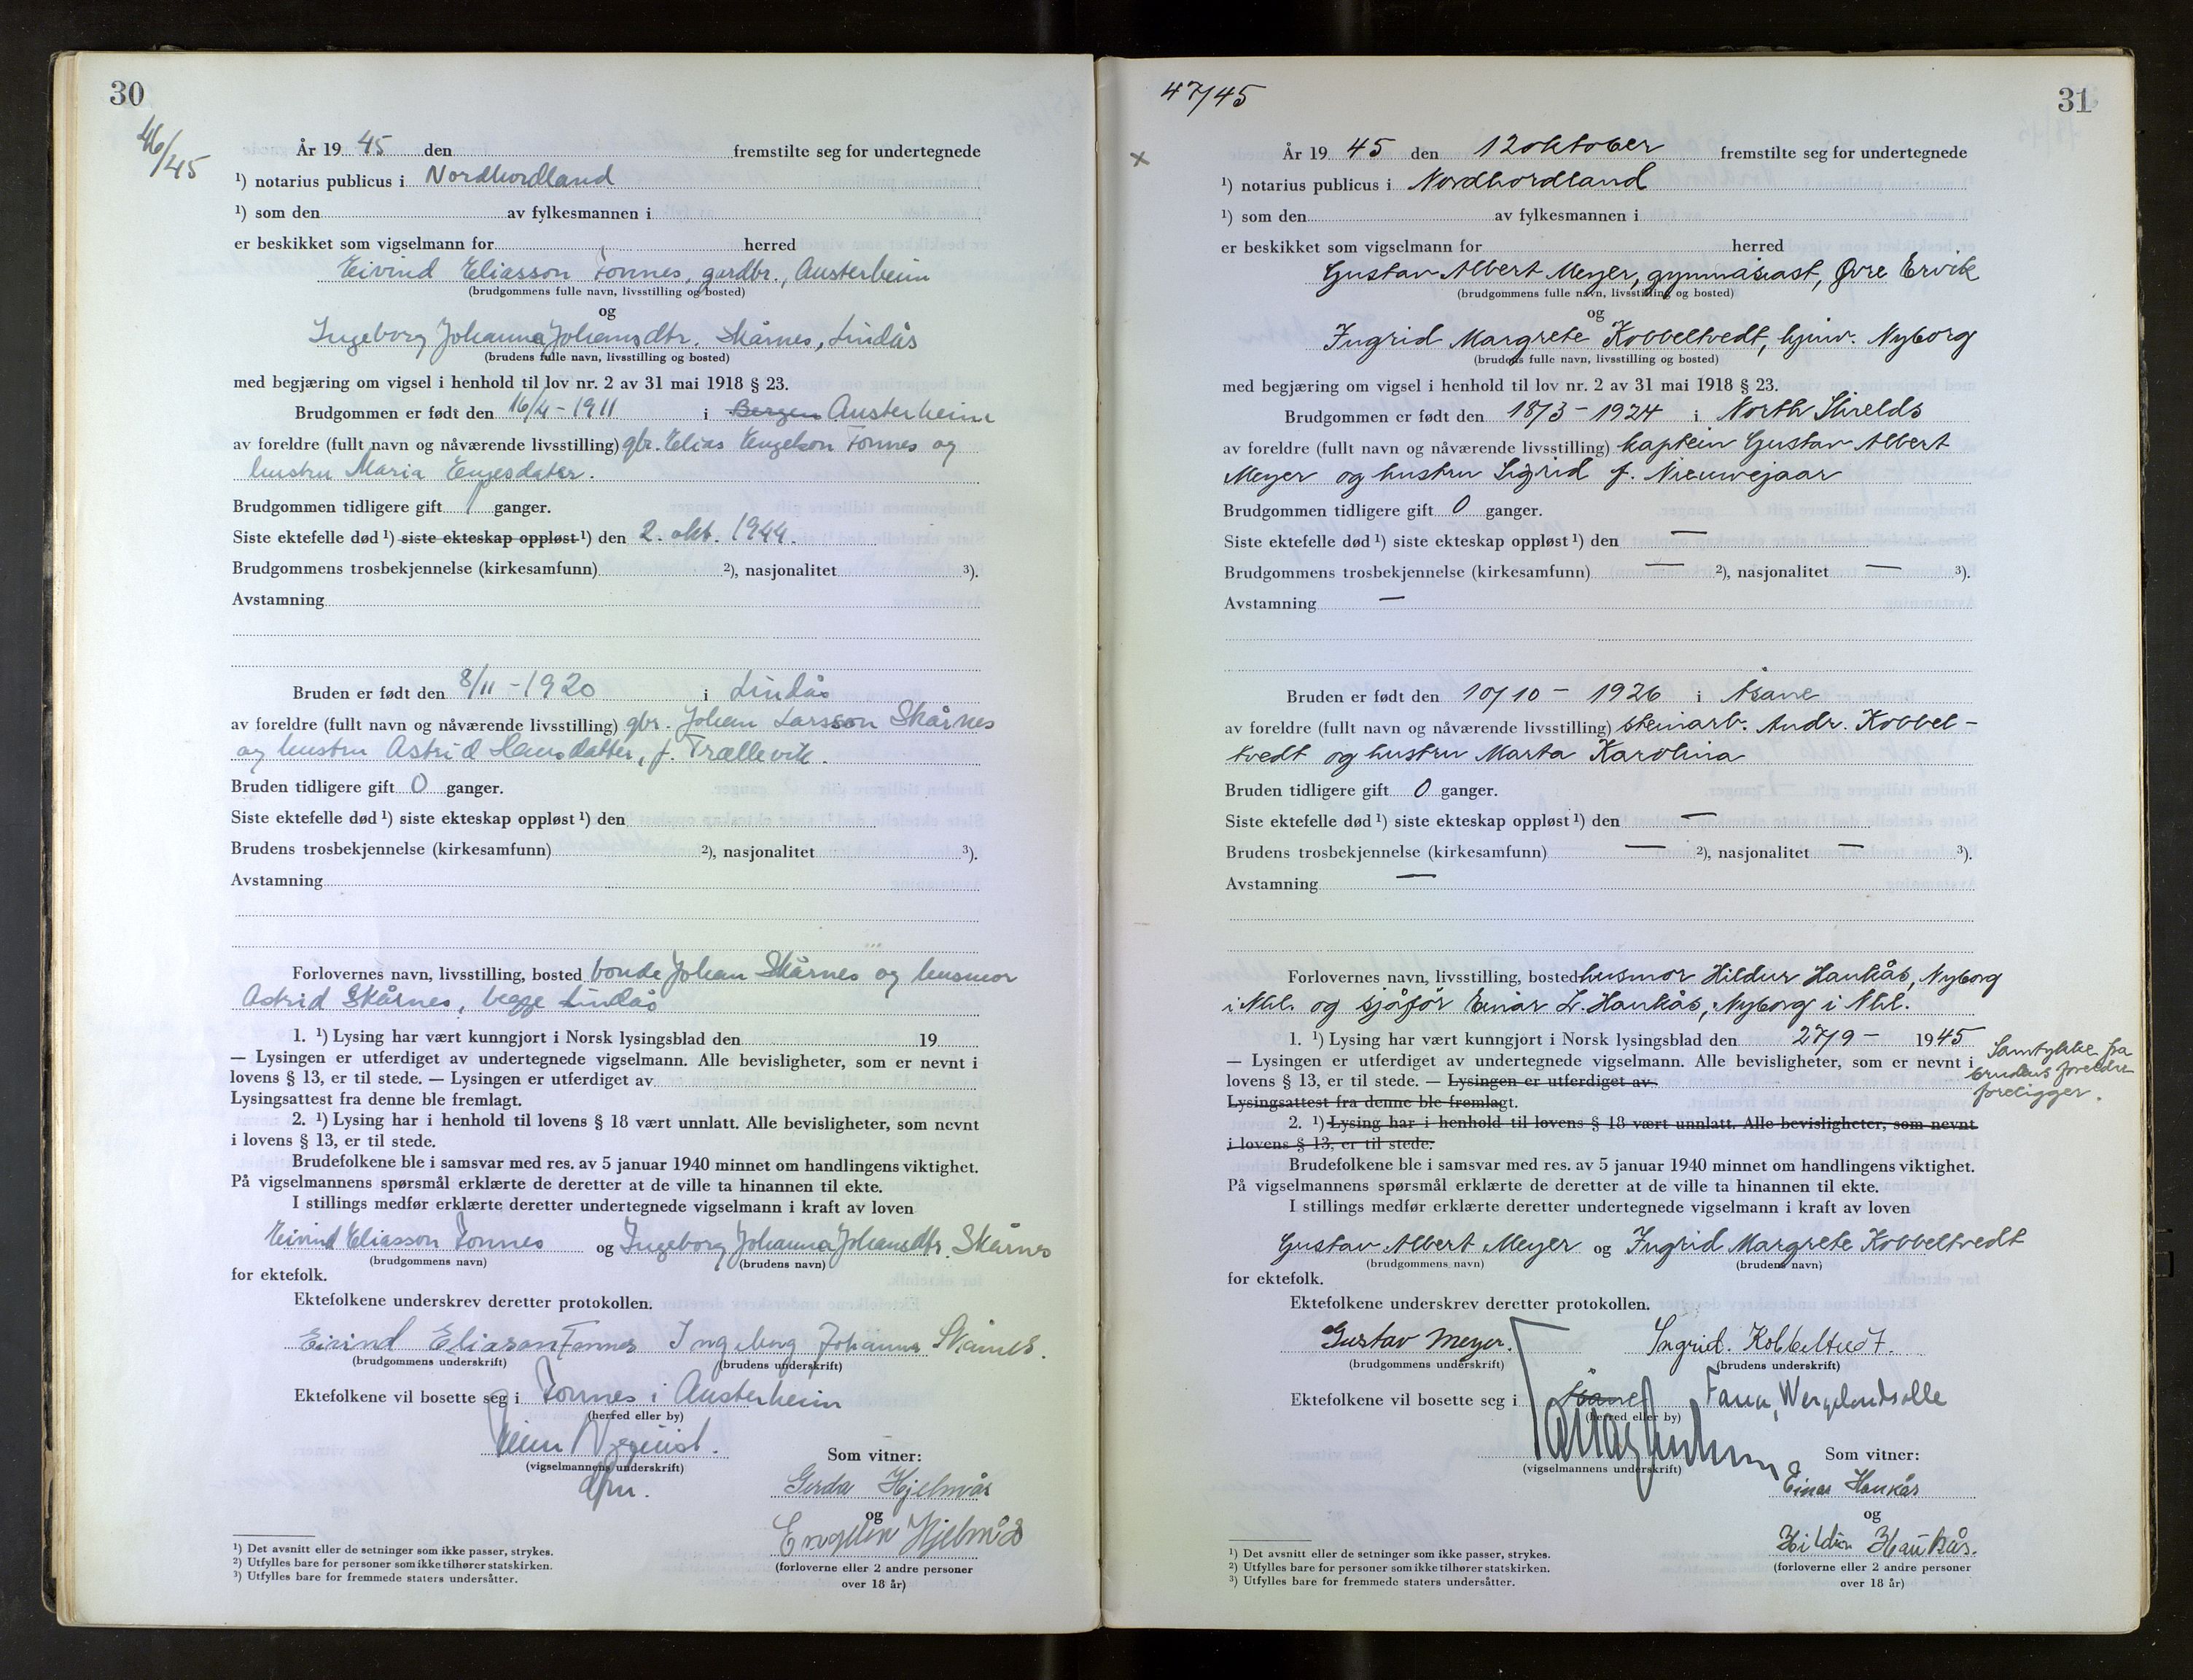 30
46/45
År 19 45 den fremstilte seg for undertegnede
¹) notarius publicus i Nordhordland
¹) som den av fylkesmannen i
er beskikket som vigselmann for herred
Eivind Eliasson Fonnes, gardbr., Austerheim
(brudgommens fulle navn, livsstilling og bosted)
og
Ingeborg Johanna Johansdtr. Skårnes, Lindås
(brudens fulle navn, livsstilling og bosted)
med begjæring om vigsel i henhold til lov nr. 2 av 31 mai 1918 § 23.
Brudgommen er født den 16/4 - 1911 i Bergen Austerheim
av foreldre (fullt navn og nåværende livsstilling) gbr. Elias Engelson Fonnes og
hustru Maria Engesdatter.
Brudgommen tidligere gift 1 ganger.
Siste ektefelle død ¹) siste ekteskap oppløst ¹) den 2. okt. 1944.
Brudgommens trosbekjennelse (kirkesamfunn) ²), nasjonalitet ³).
Avstamning
Bruden er født den 8/11 - 1920 i Lindås
av foreldre (fullt navn og nåværende livsstilling) gbr. Johan Larsson Skårnes
og hustru Astrid Hansdatter, f. Trællevik.
Bruden tidligere gift 0 ganger.
Siste ektefelle død ¹) siste ekteskap oppløst ¹) den
Brudens trosbekjennelse (kirkesamfunn) ²), nasjonalitet ³).
Avstamning
Forlovernes navn, livsstilling, bosted bonde Johan Skårnes og husmor
Astrid Skårnes, begge Lindås
1. ¹) Lysing har vært kunngjort i Norsk lysingsblad den 19
— Lysingen er utferdiget av undertegnede vigselmann. Alle bevisligheter, som er nevnt i
lovens § 13, er til stede. — Lysingen er utferdiget av
Lysingsattest fra denne ble fremlagt.
2. ¹) Lysing har i henhold til lovens § 18 vært unnlatt. Alle bevisligheter, som nevnt
i lovens § 13, er til stede.
Brudefolkene ble i samsvar med res. av 5 januar 1940 minnet om handlingens viktighet.
På vigselmannens spørsmål erklærte de deretter at de ville ta hinannen til ekte.
I stillings medfør erklærte deretter undertegnede vigselmann i kraft av loven
Eivind Eliasson Fonnes og Ingeborg Johanna Johansdtr. Skårnes
(brudgommens navn) (brudens navn)
for ektefolk.
Ektefolkene underskrev deretter protokollen.
Eivind Eliasson Fonnes Ingeborg Johanna Skårnes.
(brudgommens underskrift) (brudens underskrift)
Ektefolkene vil bosette seg i Fonnes i Austerheim
(herred eller by)
(vigselmannens underskrift)
Som vitner:
Gerda Hjelmås
og
Engelin Hjelmås
(forloverne eller 2 andre personer
over 18 år)
¹) Det avsnitt eller de setninger som ikke passer, strykes.
²) Utfylles bare for personer som ikke tilhører statskirken.
³) Utfylles bare for fremmede staters undersåtter.
47/45
31
×
År 19 45 den 12 oktober fremstilte seg for undertegnede
¹) notarius publicus i Nordhordland
¹) som den av fylkesmannen i
er beskikket som vigselmann for herred
Gustav Albert Meyer, gymnasiast, Øvre Ervik
(brudgommens fulle navn, livsstilling og bosted)
og
Ingrid Margrete Kobbeltvedt, hjmv. Nyborg
(brudens fulle navn, livsstilling og bosted)
med begjæring om vigsel i henhold til lov nr. 2 av 31 mai 1918 § 23.
Brudgommen er født den 18/3 - 1924 i North Shields
av foreldre (fullt navn og nåværende livsstilling) kaptein Gustav Albert
Meyer og hustru Sigrid f. Nieuwejaar
Brudgommen tidligere gift 0 ganger.
Siste ektefelle død ¹) siste ekteskap oppløst ¹) den —
Brudgommens trosbekjennelse (kirkesamfunn) — ²), nasjonalitet — ³).
Avstamning —
Bruden er født den 10/10 - 1926 i Åsane
av foreldre (fullt navn og nåværende livsstilling) steinarb. Andr. Kobbel-
tvedt og hustru Marta Karolina
Bruden tidligere gift 0 ganger.
Siste ektefelle død ¹) siste ekteskap oppløst ¹) den —
Brudens trosbekjennelse (kirkesamfunn) — ²), nasjonalitet — ³).
Avstamning —
Forlovernes navn, livsstilling, bosted husmor Hildur Haukås, Nyborg
i Nhl. og sjåfør Einar L. Haukås, Nyborg i Nhl.
1. ¹) Lysing har vært kunngjort i Norsk lysingsblad den 27/9 - 1945
— Lysingen er utferdiget av undertegnede vigselmann. Alle bevisligheter, som er nevnt i
lovens § 13, er til stede. — Lysingen er utferdiget av
Lysingsattest fra denne ble fremlagt.
Samtykke fra
brudens foreldre
foreligger.
2. ¹) Lysing har i henhold til lovens § 18 vært unnlatt. Alle bevisligheter, som nevnt
i lovens § 13, er til stede.
Brudefolkene ble i samsvar med res. av 5 januar 1940 minnet om handlingens viktighet.
På vigselmannens spørsmål erklærte de deretter at de ville ta hinannen til ekte.
I stillings medfør erklærte deretter undertegnede vigselmann i kraft av loven
Gustav Albert Meyer og Ingrid Margrete Kobbeltvedt
(brudgommens navn) (brudens navn)
for ektefolk.
Ektefolkene underskrev deretter protokollen.
Gustav Meyer. Ingrid. Kobbeltvedt.
(brudgommens underskrift) (brudens underskrift)
Ektefolkene vil bosette seg i Åsane Fana, Wergelandsalle
(herred eller by)
(vigselmannens underskrift)
Som vitner:
Einar Haukås
og
Hildur Haukås.
(forloverne eller 2 andre personer
over 18 år)
¹) Det avsnitt eller de setninger som ikke passer, strykes.
²) Utfylles bare for personer som ikke tilhører statskirken.
³) Utfylles bare for fremmede staters undersåtter.